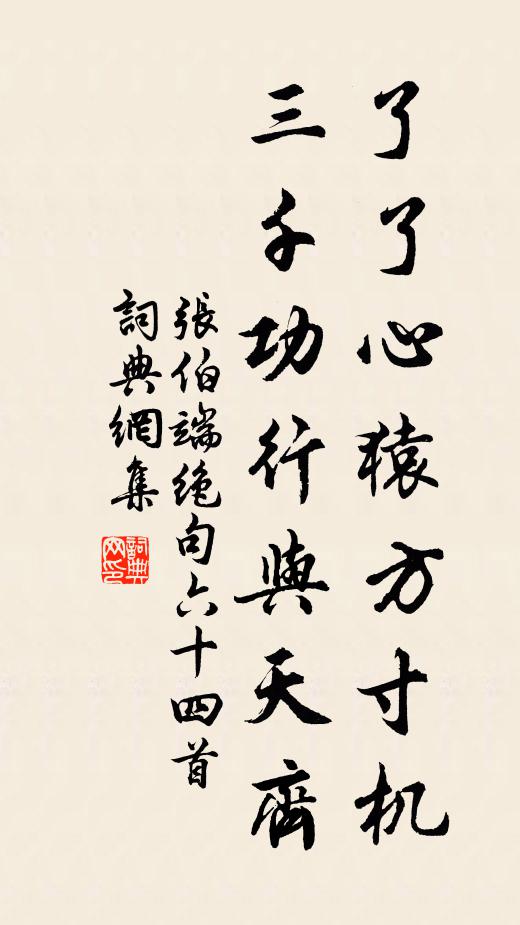 了了心猿方寸机
三千功行與天齊
張伯端絶句六十四首
詞典網集
詞典网印